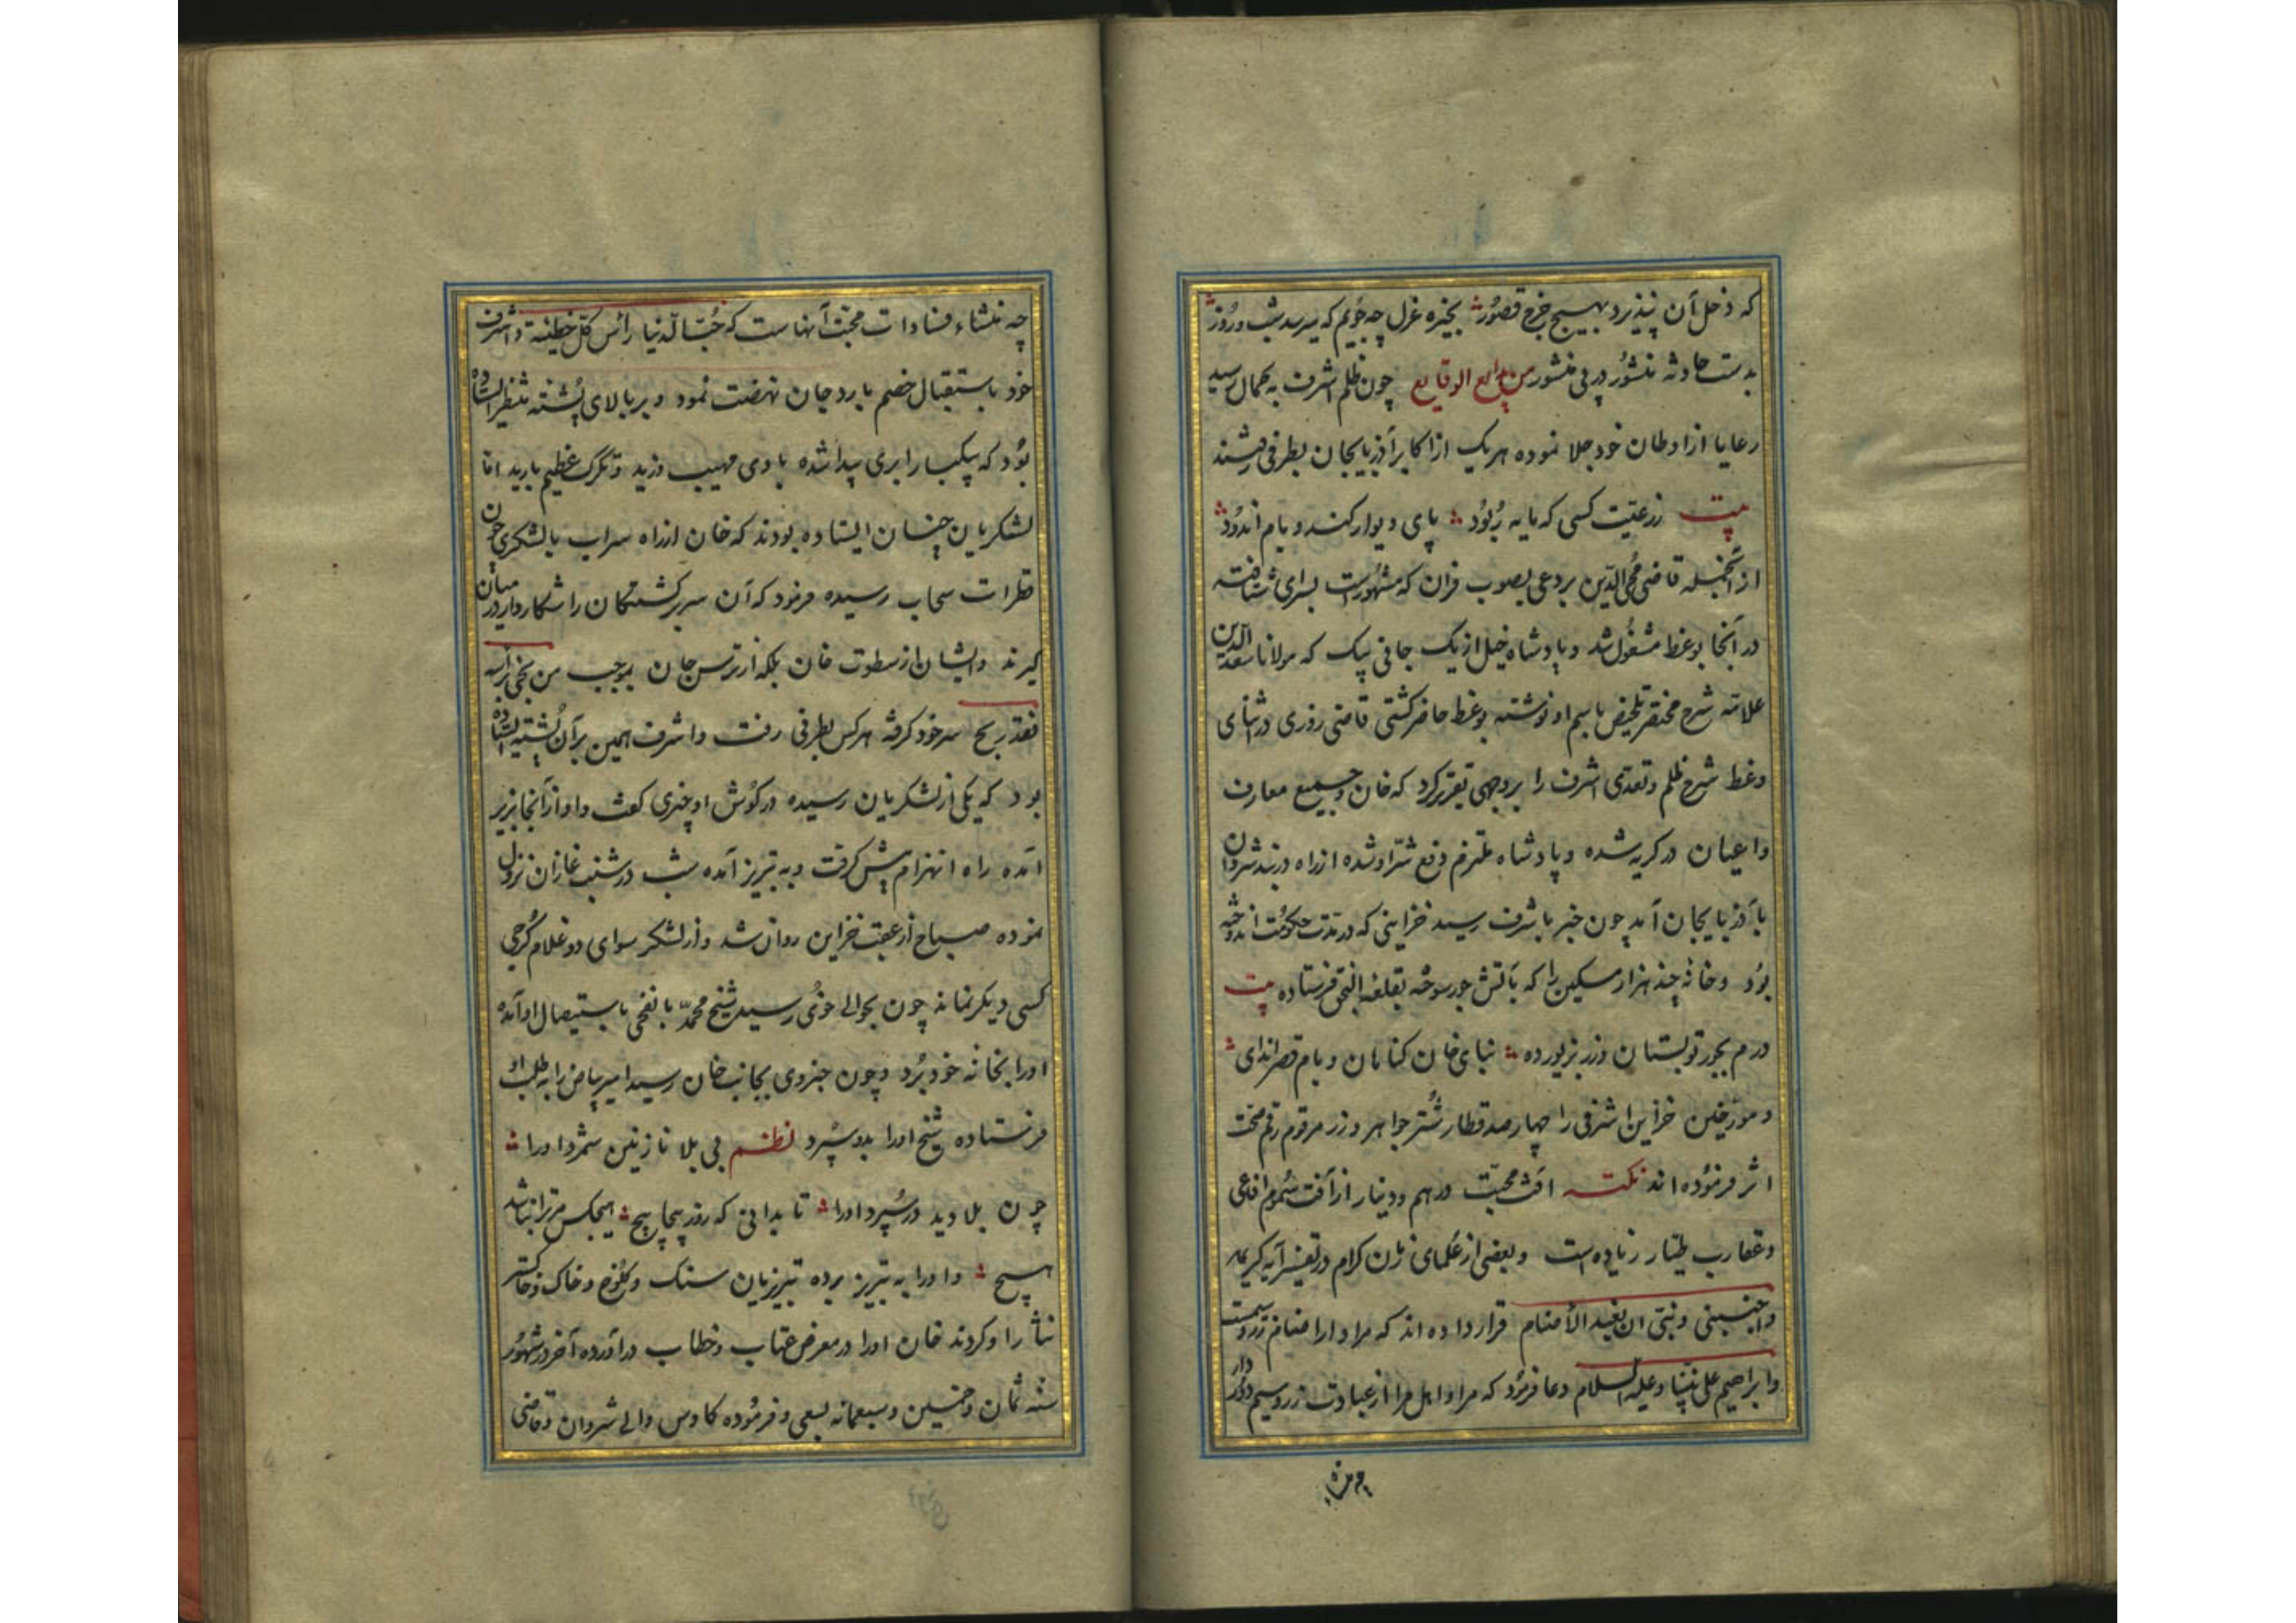 که دخل آن نپذیرد بهیچ خرج قصور ؞ بخیره غزل چه جویم که میرسد شب و روز ؞
بدست حادثه منشور در پی منشور من بدایع الوقایع چون ظلم اشرف به کمال رسید
رعایا از اوطان خود جلا نموده هر یک از اکابر آذربایجان بطرفی رفتند
بیت ز رعیت کسی که مایه ربود ؞ پای دیوار کند و بام اندود ؞
از آنجمله قاضی محی الدین بردعی بصوب قران که مشهورست بسرای شتافته
در آنجا بوعظ مشغول شد و پادشاه خیل ازبک جانی بیک که مولانا سعد الدین
علامه شرح مختصر تلخیص باسم او نوشته بوعظ حاضر گشتی قاضی روزی در اثنای
وعظ شرح ظلم و تعدی اشرف را بر وجهی تقریر کرد که خان و جمیع معارف
و اعیان در گریه شده و پادشاه ملتزم دفع شر او شده از راه دربند شروان
بآذربایجان آمد چون خبر باشرف رسید خزاینی که در مدت حکومت اندوخته
بود و خانه چند هزار مسکین را که بآتش جور سوخته بقلعه النجق فرستاده بیت
درم بجور تو بستان و زر بزیور ده ؞ بنای خان کنان و بام قصر اندای ؞
و مورخین خزاین اشرفی را چهار صد قطار شتر جواهر و زر مرقوم رقم صحت
اثر فرموده اند نکته آفت محبت درهم و دینار از آفت سموم افاعی
و عقارب طیار زیاده است و بعضی از علمای زمان کرام در تفسیر آیه کریمه
واجنبنی و بنی ان نعبد الأصنام قرار داده اند که مراد از اصنام زر و سیمست
و ابراهیم علی نبینا و علیه السلام دعا فرمود که مرا و اهل مرا از عبادت زر و سیم دور دار
چه منشاء فسادات محبت آنهاست که حب الدنیا رأس کل خطیئة و اشرف
خود باستقبال خصم باردجان نهضت نمود و بر بالای پشته منتظر ایستاده
بود که بیکبار ابری پیدا شده بادی مهیب وزید و تگرگ عظیم بارید اما
لشکریان چنان ایستاده بودند که خان از راه سراب با لشکری چون
قطرات سحاب رسیده فرمود که آن سرگشتگان را شکاروار در میان
گیرند و ایشان از سطوت خان بلکه از ترس جان بموجب من نجی برأسه
فقد ربح سر خود گرفته هر کس بطرفی رفت و اشرف همین بر آن پشته ایستاده
بود که یکی از لشکریان رسیده در گوش او چیزی گفت و او از آنجا بزیر
آمده راه انهزام پیش گرفت و به تبریز آمده شب در شنب غازان نزول
نموده صباح از عقب خزاین روان شد و از لشکر سوای دو غلام گرجی
کسی دیگر نماند چون بحوالی خوی رسید شیخ محمد بالغجی باستیصال او آمده
او را بخانه خود برد و چون خبر وی بجانب خان رسید امیر بیاض را به طلب او
فرستاده شیخ او را بدو سپرد نظم بی بلا نازنین شمرد او را ؞
چون بلا دید در سپرد او را ؞ تا بدانی که روز پیچاپیچ ؞ هیچکس مر ترا نباشد
هیچ ؞ و او را به تبریز برده تبریزیان سنگ و کلوخ و خاک و خاکستر
نثار او کردند خان او را در معرض عتاب و خطاب در آورده آخر در شهور
سنه ثمان و خمسین و سبعمائه بسعی و فرموده کاوس والی شروان و قاضی